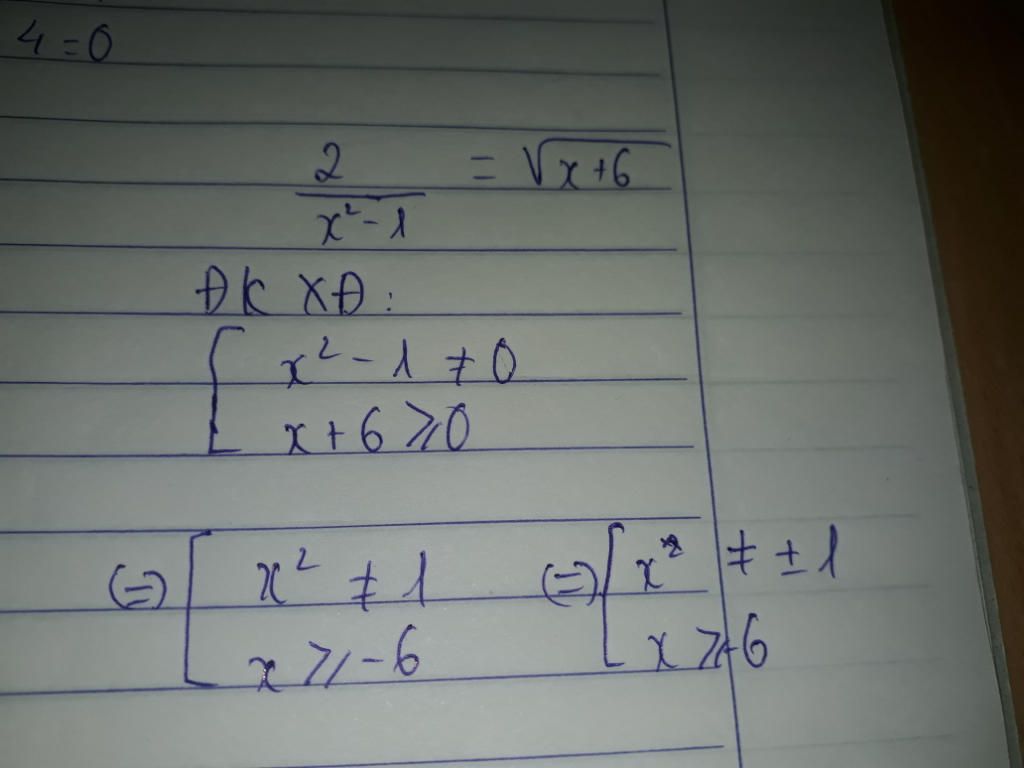 4 = 0
2 / (x² - 1) = √(x + 6)
ĐK XĐ :
[ x² - 1 ≠ 0
x + 6 ⩾ 0
(=) [ x² ≠ 1 (=) [ x ≠ ± 1
x ⩾ -6 x ⩾ -6